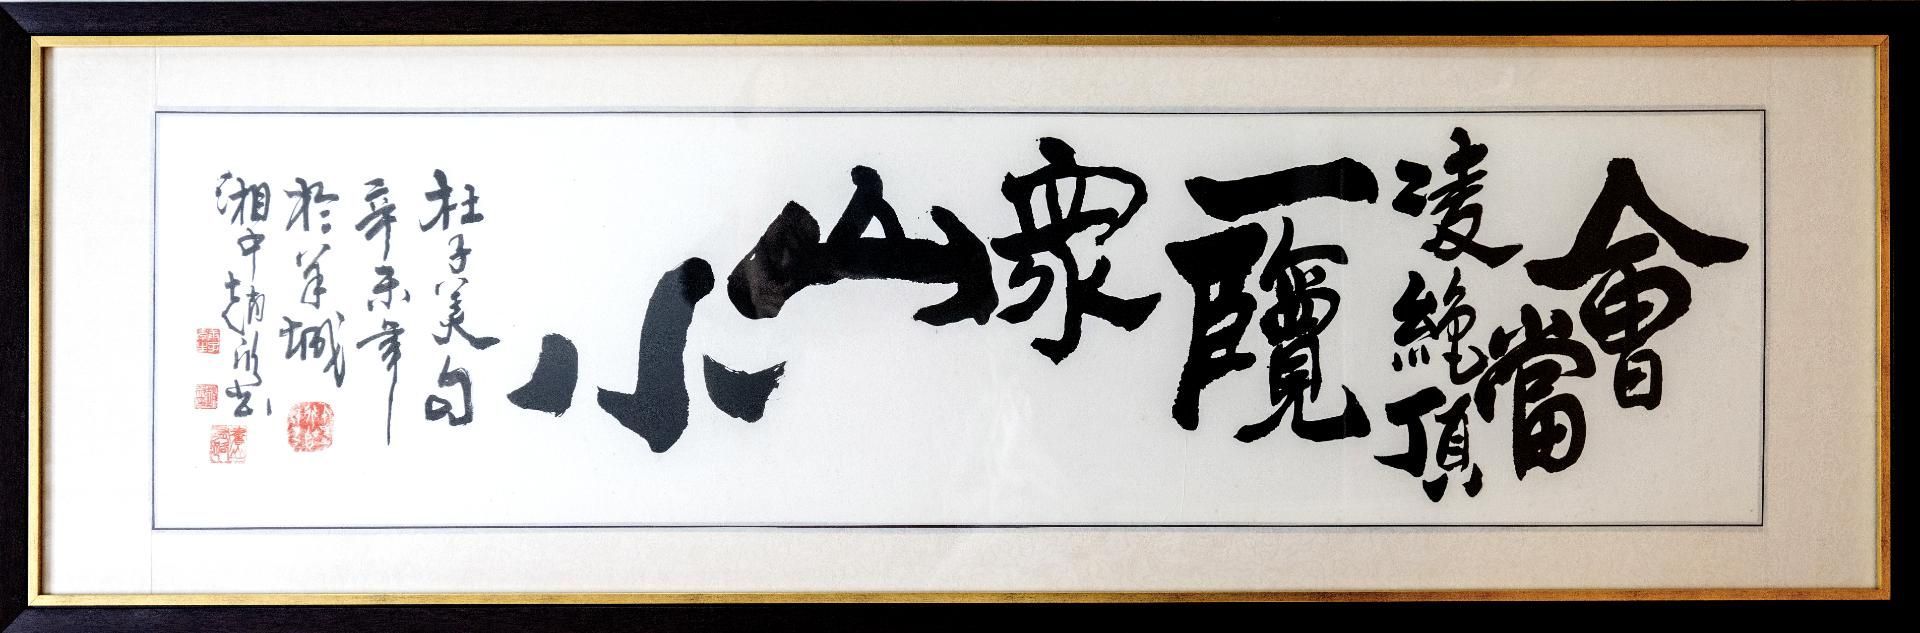 會當
凌絕頂
一覽
眾
山
小
杜子美句
辛未年
於羊城
湘中趙欣書